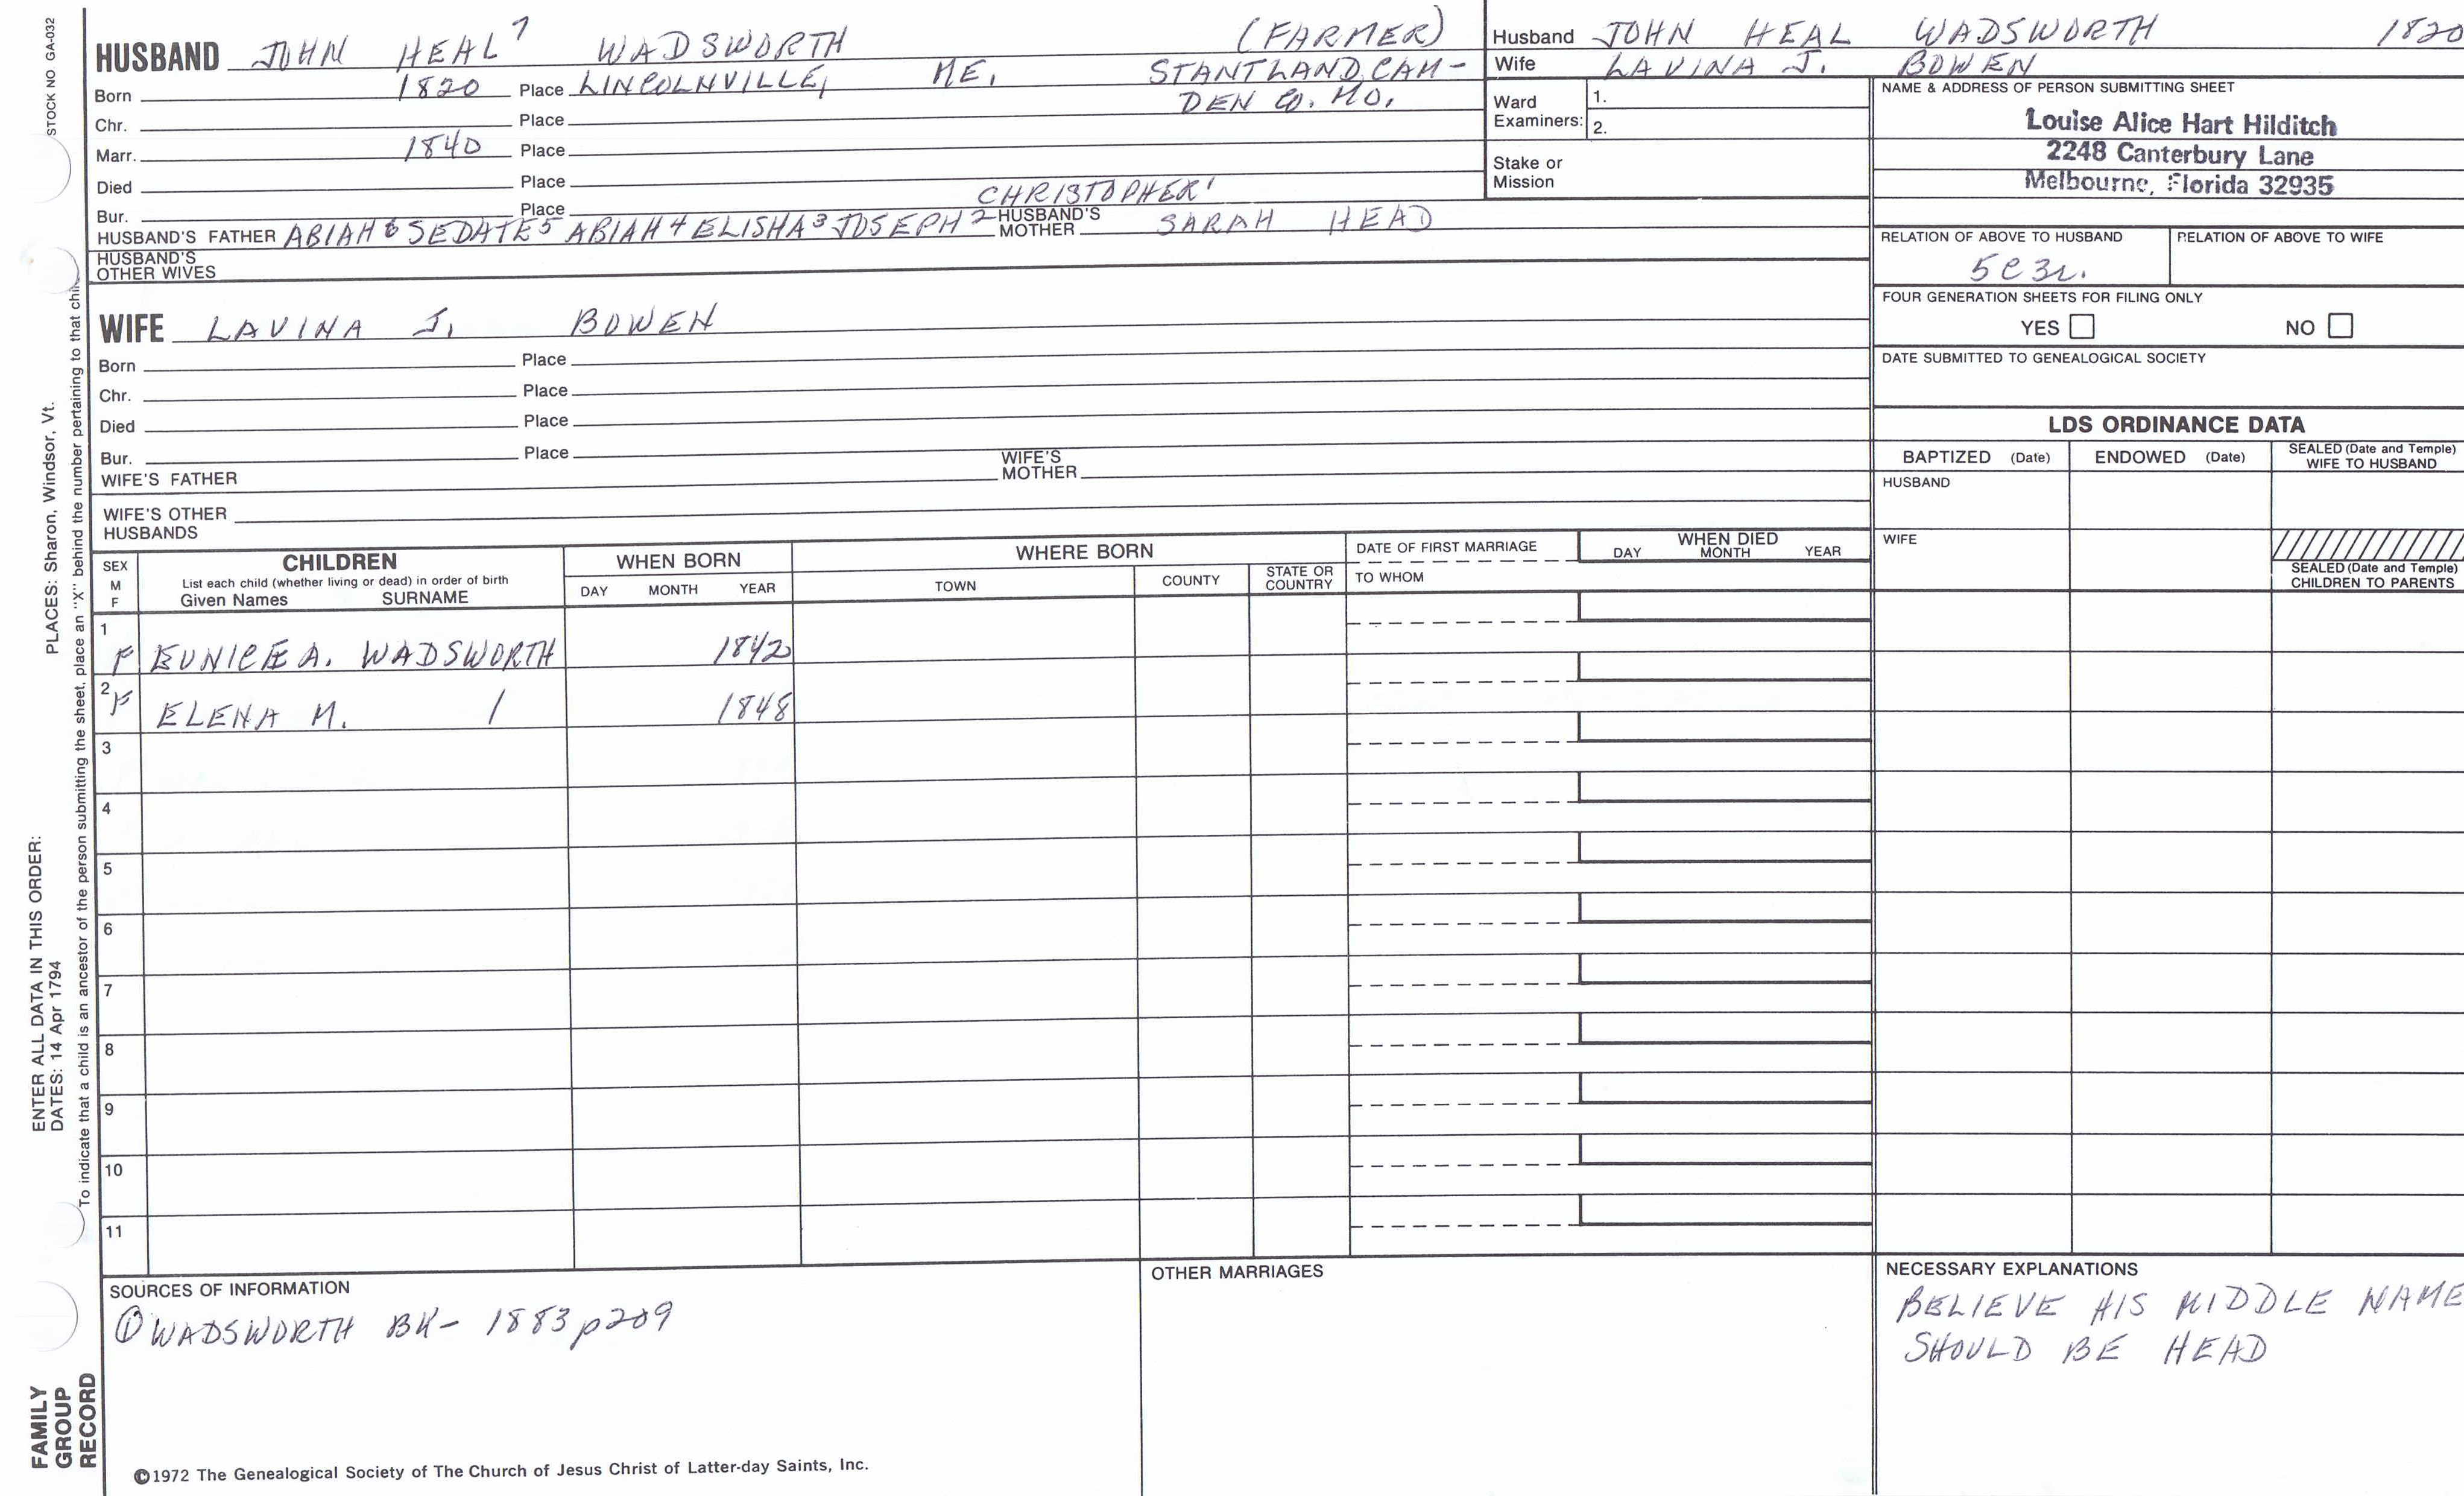 STOCK NO GA-032
HUSBAND JOHN HEAL⁷ WADSWORTH (FARMER)
Born 1820 Place LINCOLNVILLE, ME. STANTLAND, CAM-
DEN CO. MO.
Chr. Place
Marr. 1840 Place
Died Place
CHRISTOPHER¹
Bur. Place
HUSBAND'S FATHER ABIAH⁶ SEDATE⁵ ABIAH⁴ ELISHA³ JOSEPH² HUSBAND'S MOTHER SARAH HEAD
HUSBAND'S OTHER WIVES
WIFE LAVINA J. BOWEN
Born Place
Chr. Place
Died Place
Bur. Place
WIFE'S FATHER WIFE'S MOTHER
WIFE'S OTHER HUSBANDS
Husband JOHN HEAL WADSWORTH 1820
Wife LAVINA J. BOWEN
Ward Examiners: 1.
2.
Stake or Mission
NAME & ADDRESS OF PERSON SUBMITTING SHEET
Louise Alice Hart Hilditch
2248 Canterbury Lane
Melbourne, Florida 32935
RELATION OF ABOVE TO HUSBAND RELATION OF ABOVE TO WIFE
5C3r.
FOUR GENERATION SHEETS FOR FILING ONLY
YES NO
DATE SUBMITTED TO GENEALOGICAL SOCIETY
LDS ORDINANCE DATA
BAPTIZED (Date) ENDOWED (Date) SEALED (Date and Temple) WIFE TO HUSBAND
HUSBAND
WIFE
SEALED (Date and Temple) CHILDREN TO PARENTS
SEX M F
CHILDREN
List each child (whether living or dead) in order of birth
Given Names SURNAME
WHEN BORN
DAY MONTH YEAR
WHERE BORN
TOWN COUNTY STATE OR COUNTRY
DATE OF FIRST MARRIAGE
TO WHOM
WHEN DIED
DAY MONTH YEAR
1 F EUNICE A. WADSWORTH 1842
2 F ELENA M. / 1848
3
4
5
6
7
8
9
10
11
SOURCES OF INFORMATION
① WADSWORTH BK- 1883 p209
OTHER MARRIAGES
NECESSARY EXPLANATIONS
BELIEVE HIS MIDDLE NAME
SHOULD BE HEAD
©1972 The Genealogical Society of The Church of Jesus Christ of Latter-day Saints, Inc.
FAMILY
GROUP
RECORD
ENTER ALL DATA IN THIS ORDER:
DATES: 14 Apr 1794 PLACES: Sharon, Windsor, Vt.
To indicate that a child is an ancestor of the person submitting the sheet, place an "X" behind the number pertaining to that chil